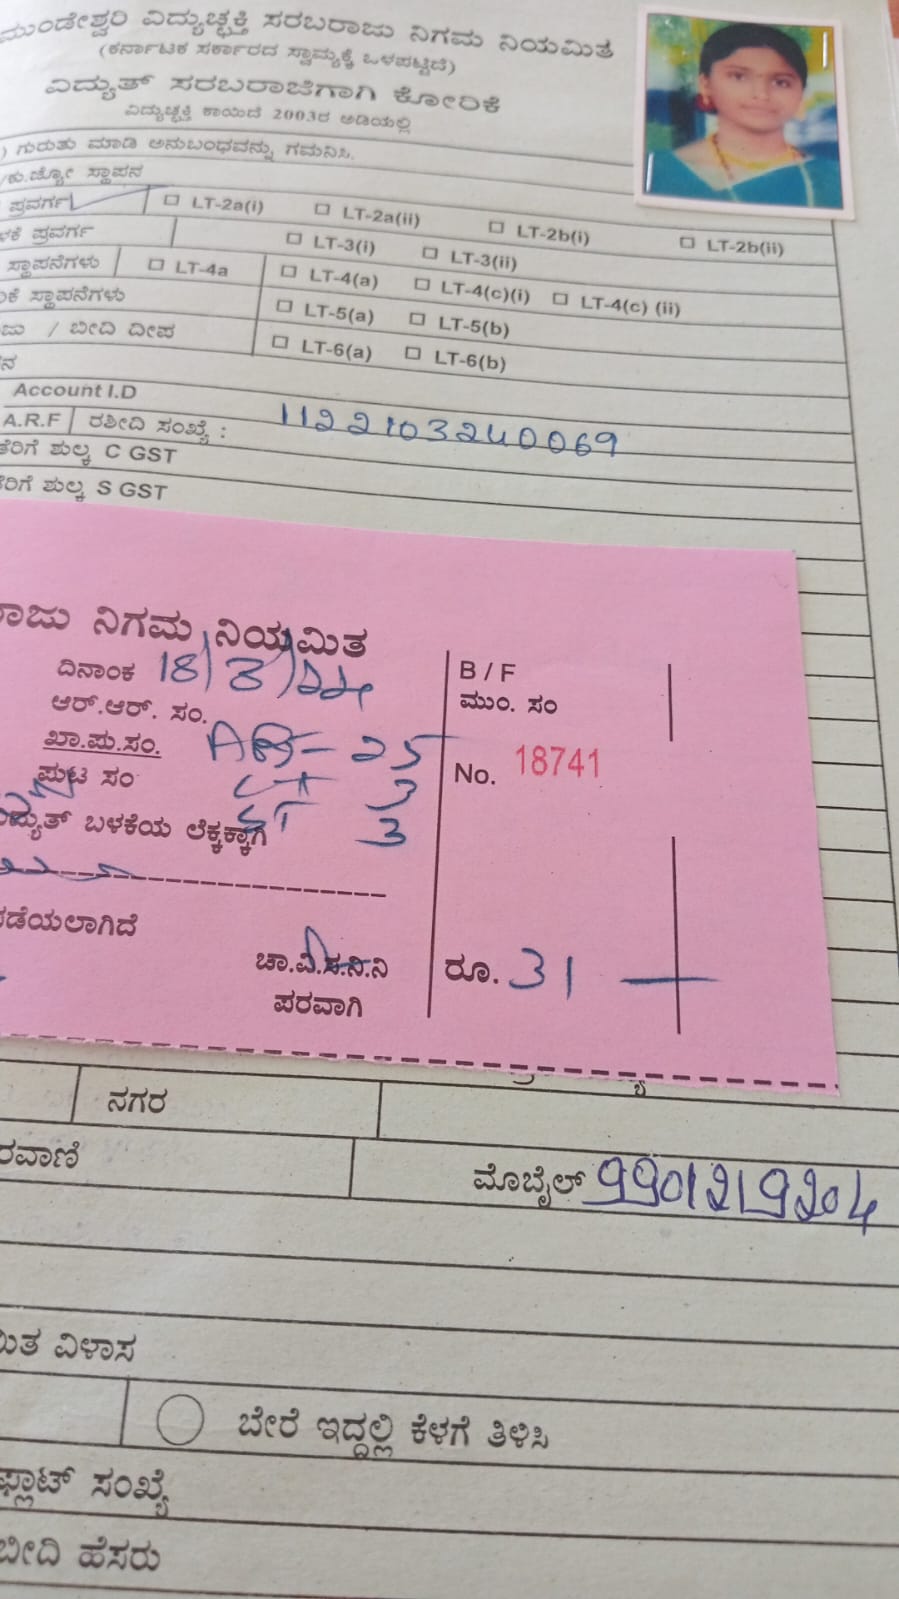 ಮುಂಡೇಶ್ವರಿ ವಿದ್ಯುಚ್ಛಕ್ತಿ ಸರಬರಾಜು ನಿಗಮ ನಿಯಮಿತ
(ಕರ್ನಾಟಕ ಸರ್ಕಾರದ ಸ್ವಾಮ್ಯಕ್ಕೆ ಒಳಪಟ್ಟಿದೆ)
ವಿದ್ಯುತ್ ಸರಬರಾಜಿಗಾಗಿ ಕೋರಿಕೆ
ವಿದ್ಯುಚ್ಛಕ್ತಿ ಕಾಯಿದೆ 2003ರ ಅಡಿಯಲ್ಲಿ
) ಗುರುತು ಮಾಡಿ ಅನುಬಂಧವನ್ನು ಗಮನಿಸಿ.
ಸ್ಥಾಪನ
ಪ್ರವರ್ಗ ☐ LT-2a(i) ☐ LT-2a(ii) ☐ LT-2b(i) ☐ LT-2b(ii)
ಪ್ರವರ್ಗ ☐ LT-3(i) ☐ LT-3(ii)
ಸ್ಥಾಪನೆಗಳು ☐ LT-4a ☐ LT-4(a) ☐ LT-4(c)(i) ☐ LT-4(c) (ii)
ಸ್ಥಾಪನೆಗಳು ☐ LT-5(a) ☐ LT-5(b)
/ ಬೀದಿ ದೀಪ ☐ LT-6(a) ☐ LT-6(b)
Account I.D
A.R.F ರಶೀದಿ ಸಂಖ್ಯೆ : 1122103240069
ತೆರಿಗೆ ಶುಲ್ಕ C GST
ತೆರಿಗೆ ಶುಲ್ಕ S GST
ರಾಜು ನಿಗಮ ನಿಯಮಿತ
ದಿನಾಂಕ 18/3/24
ಆರ್.ಆರ್. ಸಂ.
ಖಾ.ಪು.ಸಂ. 25
ಪುಟ ಸಂ 3
ವಿದ್ಯುತ್ ಬಳಕೆಯ ಲೆಕ್ಕಕ್ಕಾಗಿ ST 3
ಪಡೆಯಲಾಗಿದೆ
ಚಾ.ವಿ.ಸ.ನಿ.ನಿ
ಪರವಾಗಿ
B / F
ಮುಂ. ಸಂ
No. 18741
ರೂ. 31
ನಗರ
ಮೊಬೈಲ್ 9901219204
ವಿಳಾಸ
ಬೇರೆ ಇದ್ದಲ್ಲಿ ಕೆಳಗೆ ತಿಳಿಸಿ
ಫ್ಲಾಟ್ ಸಂಖ್ಯೆ
ಬೀದಿ ಹೆಸರು